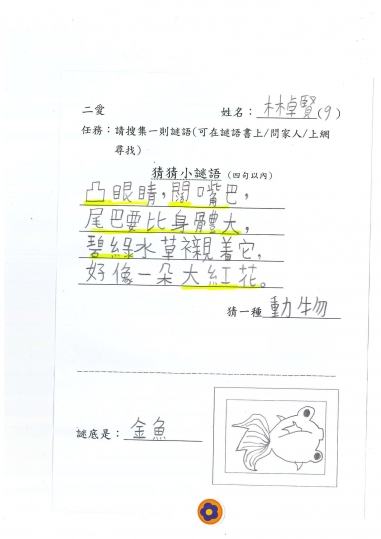 二愛 姓名：林卓賢(9)
任務：請搜集一則謎語(可在謎語書上/問家人/上網
尋找)
猜猜小謎語 (四句以內)
凸眼睛，闊嘴巴，
尾巴要比身體大，
碧綠水草襯着它，
好像一朵大紅花。
猜一種動物
謎底是：金魚